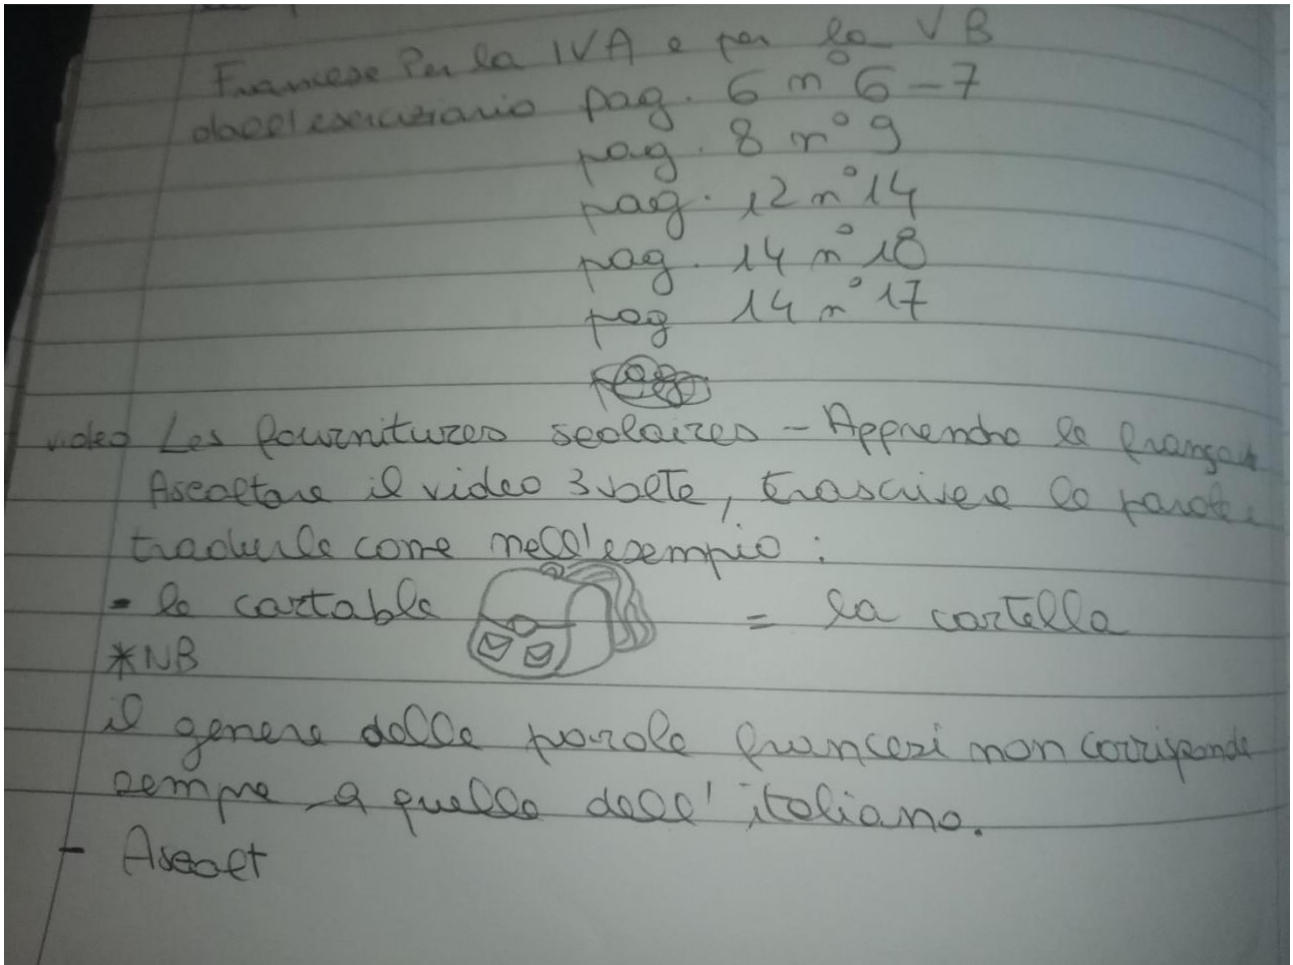 Francese Per la IVA e per la VB
dall'eserciziario pag. 6 n° 6-7
pag. 8 n° 9
pag. 12 n° 14
pag. 14 n° 18
pag 14 n° 17
video Les fournitures scolaires - Apprendre le français
Ascoltare il video 3 volte, trascrivere le parole e
tradurle come nell'esempio:
- le cartable = la cartella
*NB
il genere delle parole francesi non corrisponde
sempre a quello dell'italiano.
- Ascolt